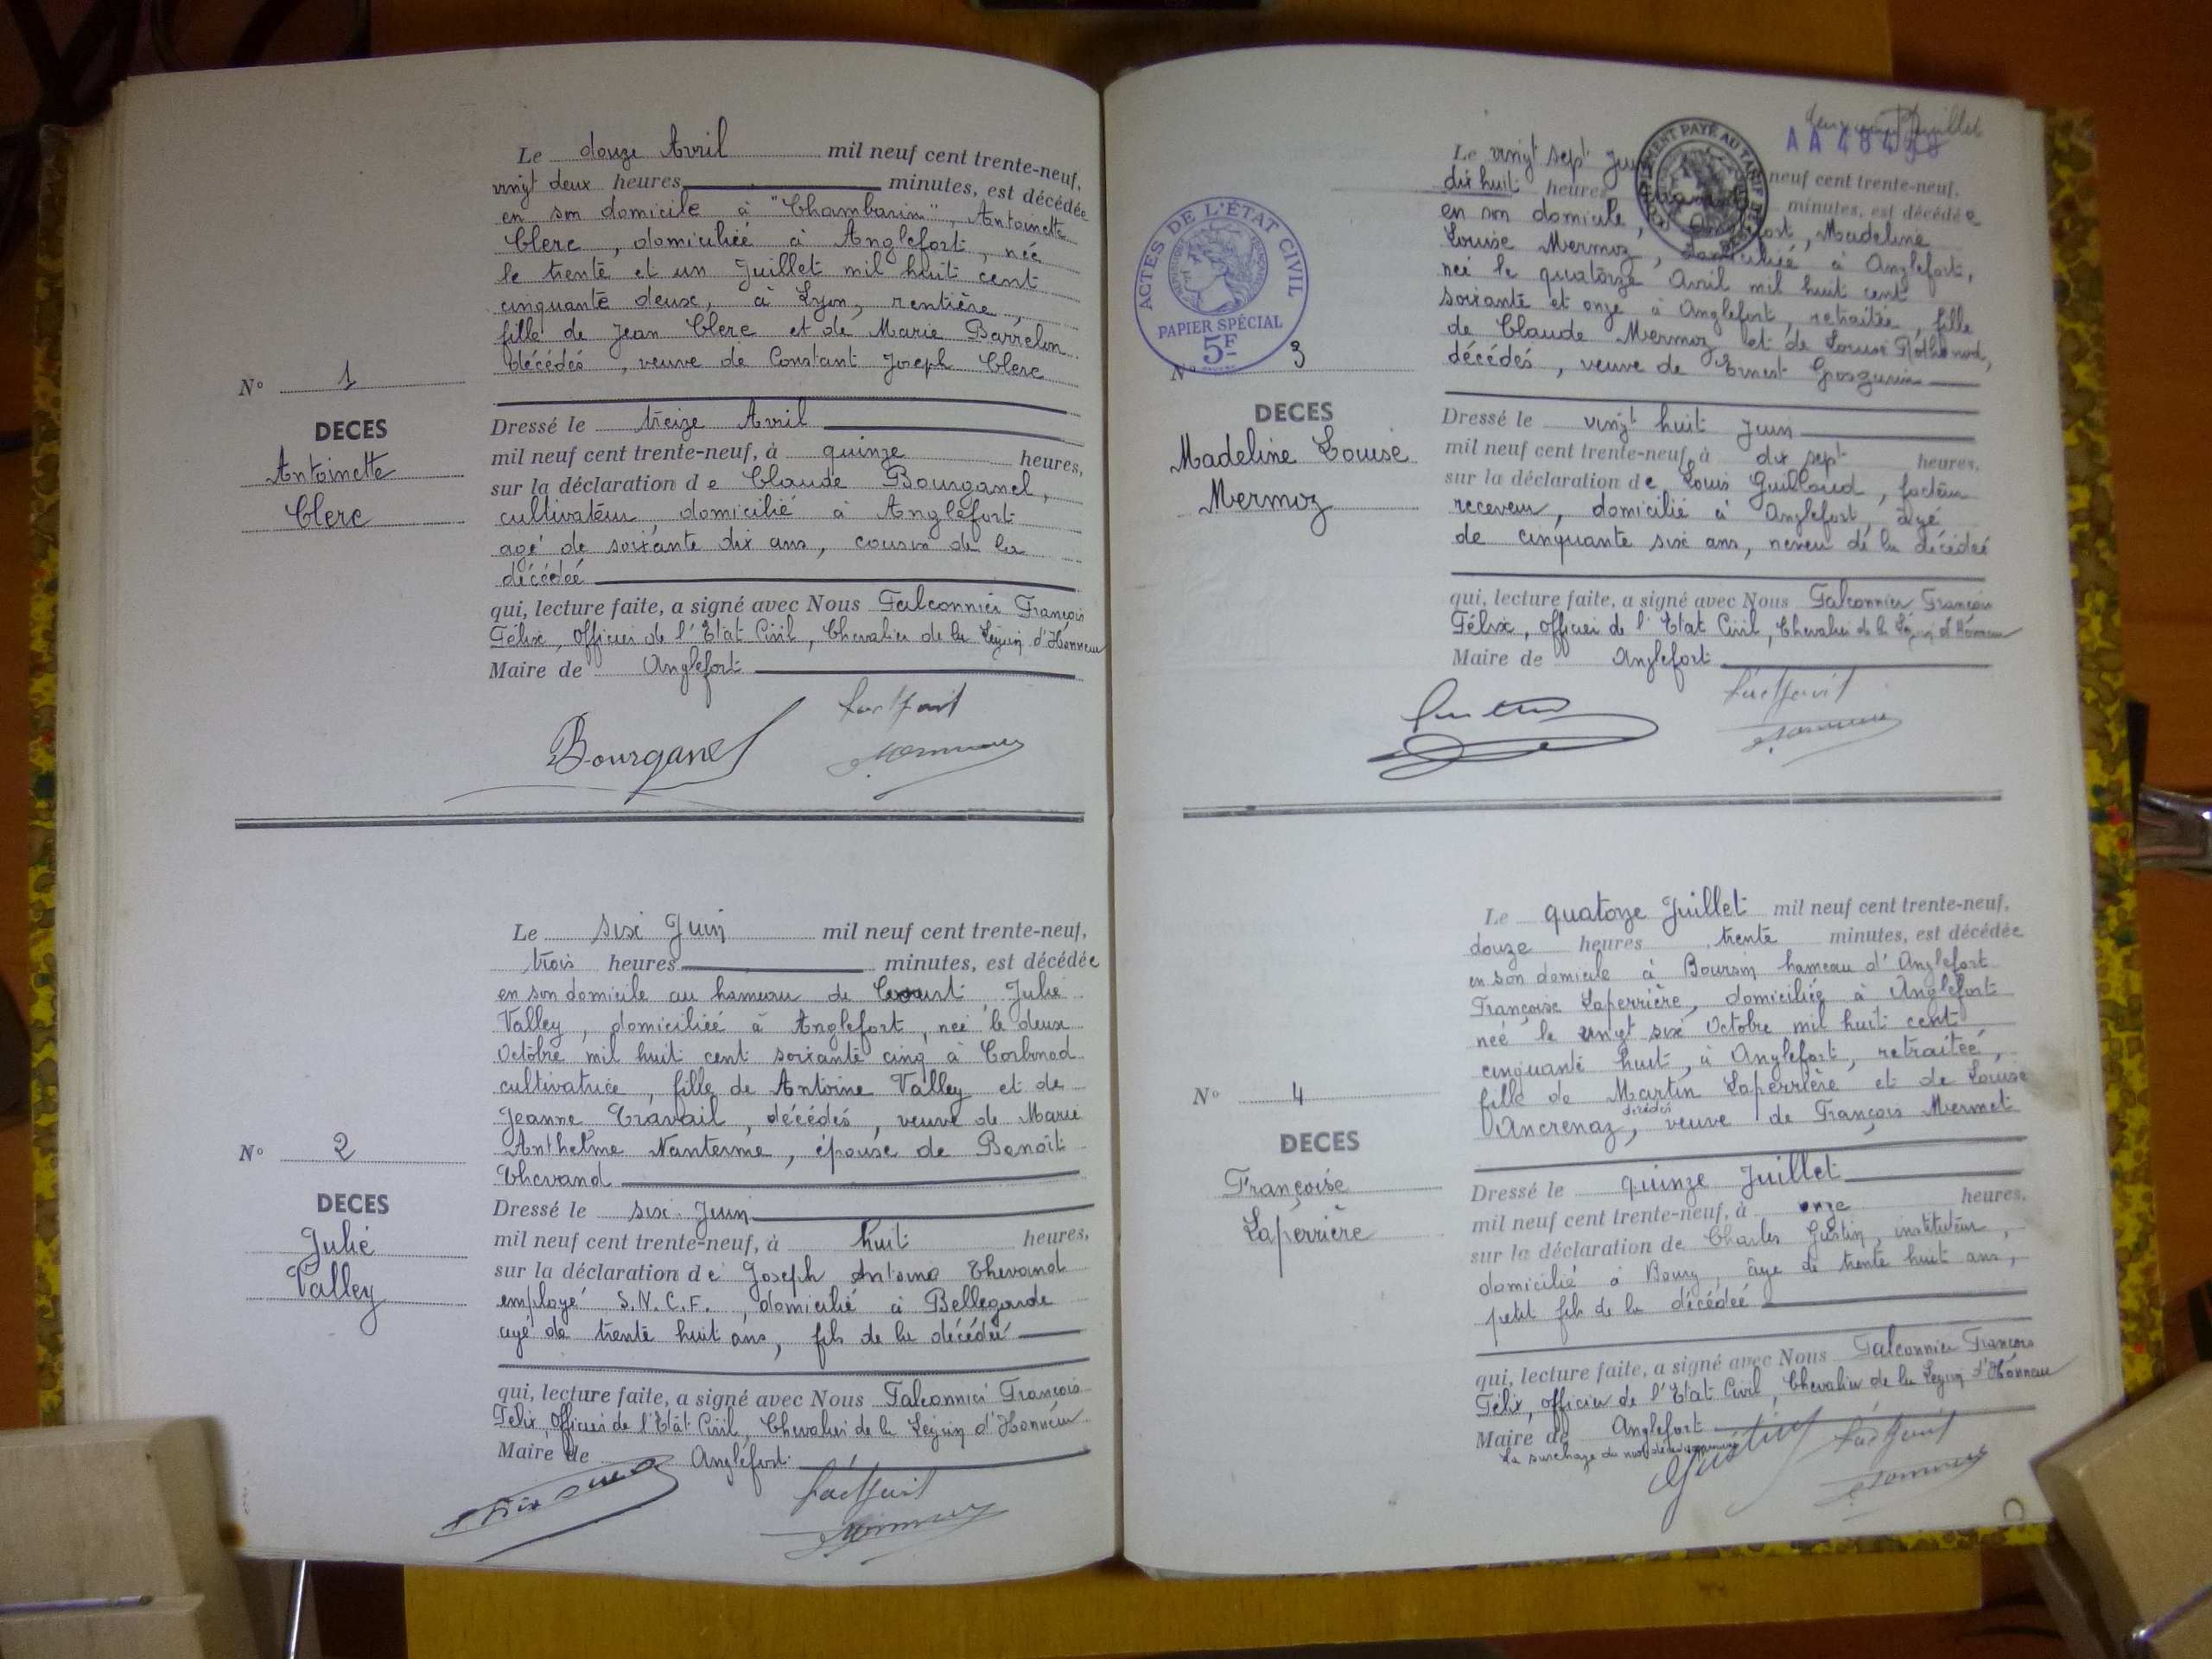 Le douze Avril mil neuf cent trente-neuf,
vingt deux heures minutes, est décédée
en son domicile à "Chambarin", Antoinette
Clerc, domiciliée à Anglefort, née
le trente et un Juillet mil huit cent
cinquante deux, à Lyon, rentière,
fille de Jean Clerc et de Marie Barrelon
décédés, veuve de Constant Joseph Clerc
N° 1
DECES
Antoinette
Clerc
Dressé le treize Avril
mil neuf cent trente-neuf, à quinze heures,
sur la déclaration de Claude Bourganel,
cultivateur, domicilié à Anglefort
agé de soixante dix ans, cousin de la
décédée
qui, lecture faite, a signé avec Nous Falconnier François
Félix, Officier de l'Etat Civil, Chevalier de la Légion d'Honneur
Maire de Anglefort
Bourganel
Le six Juin mil neuf cent trente-neuf,
trois heures minutes, est décédée
en son domicile au hameau de Julie
Valley, domiciliée à Anglefort, née le deux
Octobre mil huit cent soixante cinq à Corbonod
cultivatrice, fille de Antoine Valley et de
Jeanne Travail, décédés, veuve de Marie
Anthelme Nanterme, épouse de Benoît
Thevand
N° 2
DECES
Julie
Valley
Dressé le six Juin
mil neuf cent trente-neuf, à huit heures,
sur la déclaration de Joseph Antoine Thevand
employé S.N.C.F., domicilié à Bellegarde
agé de trente huit ans, fils de la décédée
qui, lecture faite, a signé avec Nous Falconnier François
Félix, Officier de l'Etat Civil, Chevalier de la Légion d'Honneur
Maire de Anglefort
AA
ACTES DE L'ÉTAT CIVIL
PAPIER SPÉCIAL
5F
Le vingt sept neuf cent trente-neuf,
dix huit heures minutes, est décédée
en son domicile, Madeline
Louise Mermoz, domiciliée à Anglefort,
née le quatorze Avril mil huit cent
soixante et onze à Anglefort, retraitée, fille
de Claude Mermoz et de Louise Rothonod,
décédés, veuve de Ernest
N° 3
DECES
Madeline Louise
Mermoz
Dressé le vingt huit Juin
mil neuf cent trente-neuf, à dix sept heures,
sur la déclaration de Louis Guilloud, facteur
receveur, domicilié à Anglefort, âgé
de cinquante six ans, neveu de la décédée
qui, lecture faite, a signé avec Nous Falconnier François
Félix, Officier de l'Etat Civil, Chevalier de la Légion d'Honneur
Maire de Anglefort
Le quatorze Juillet mil neuf cent trente-neuf,
douze heures trente minutes, est décédée
en son domicile à Boursin hameau d'Anglefort
Françoise Laperrière, domiciliée à Anglefort
née le vingt six Octobre mil huit cent
cinquante huit, à Anglefort, retraitée,
fille de Martin Laperrière et de Louise
décédés
Ancrenaz, veuve de François Mermet
N° 4
DECES
Françoise
Laperrière
Dressé le quinze Juillet
mil neuf cent trente-neuf, à onze heures,
sur la déclaration de Charles Gustin, instituteur,
domicilié à Bourg, âge de trente huit ans,
petit fils de la décédée
qui, lecture faite, a signé avec Nous Falconnier François
Félix, officier de l'Etat Civil, Chevalier de la Légion d'Honneur
Maire de Anglefort
La surchage du mot